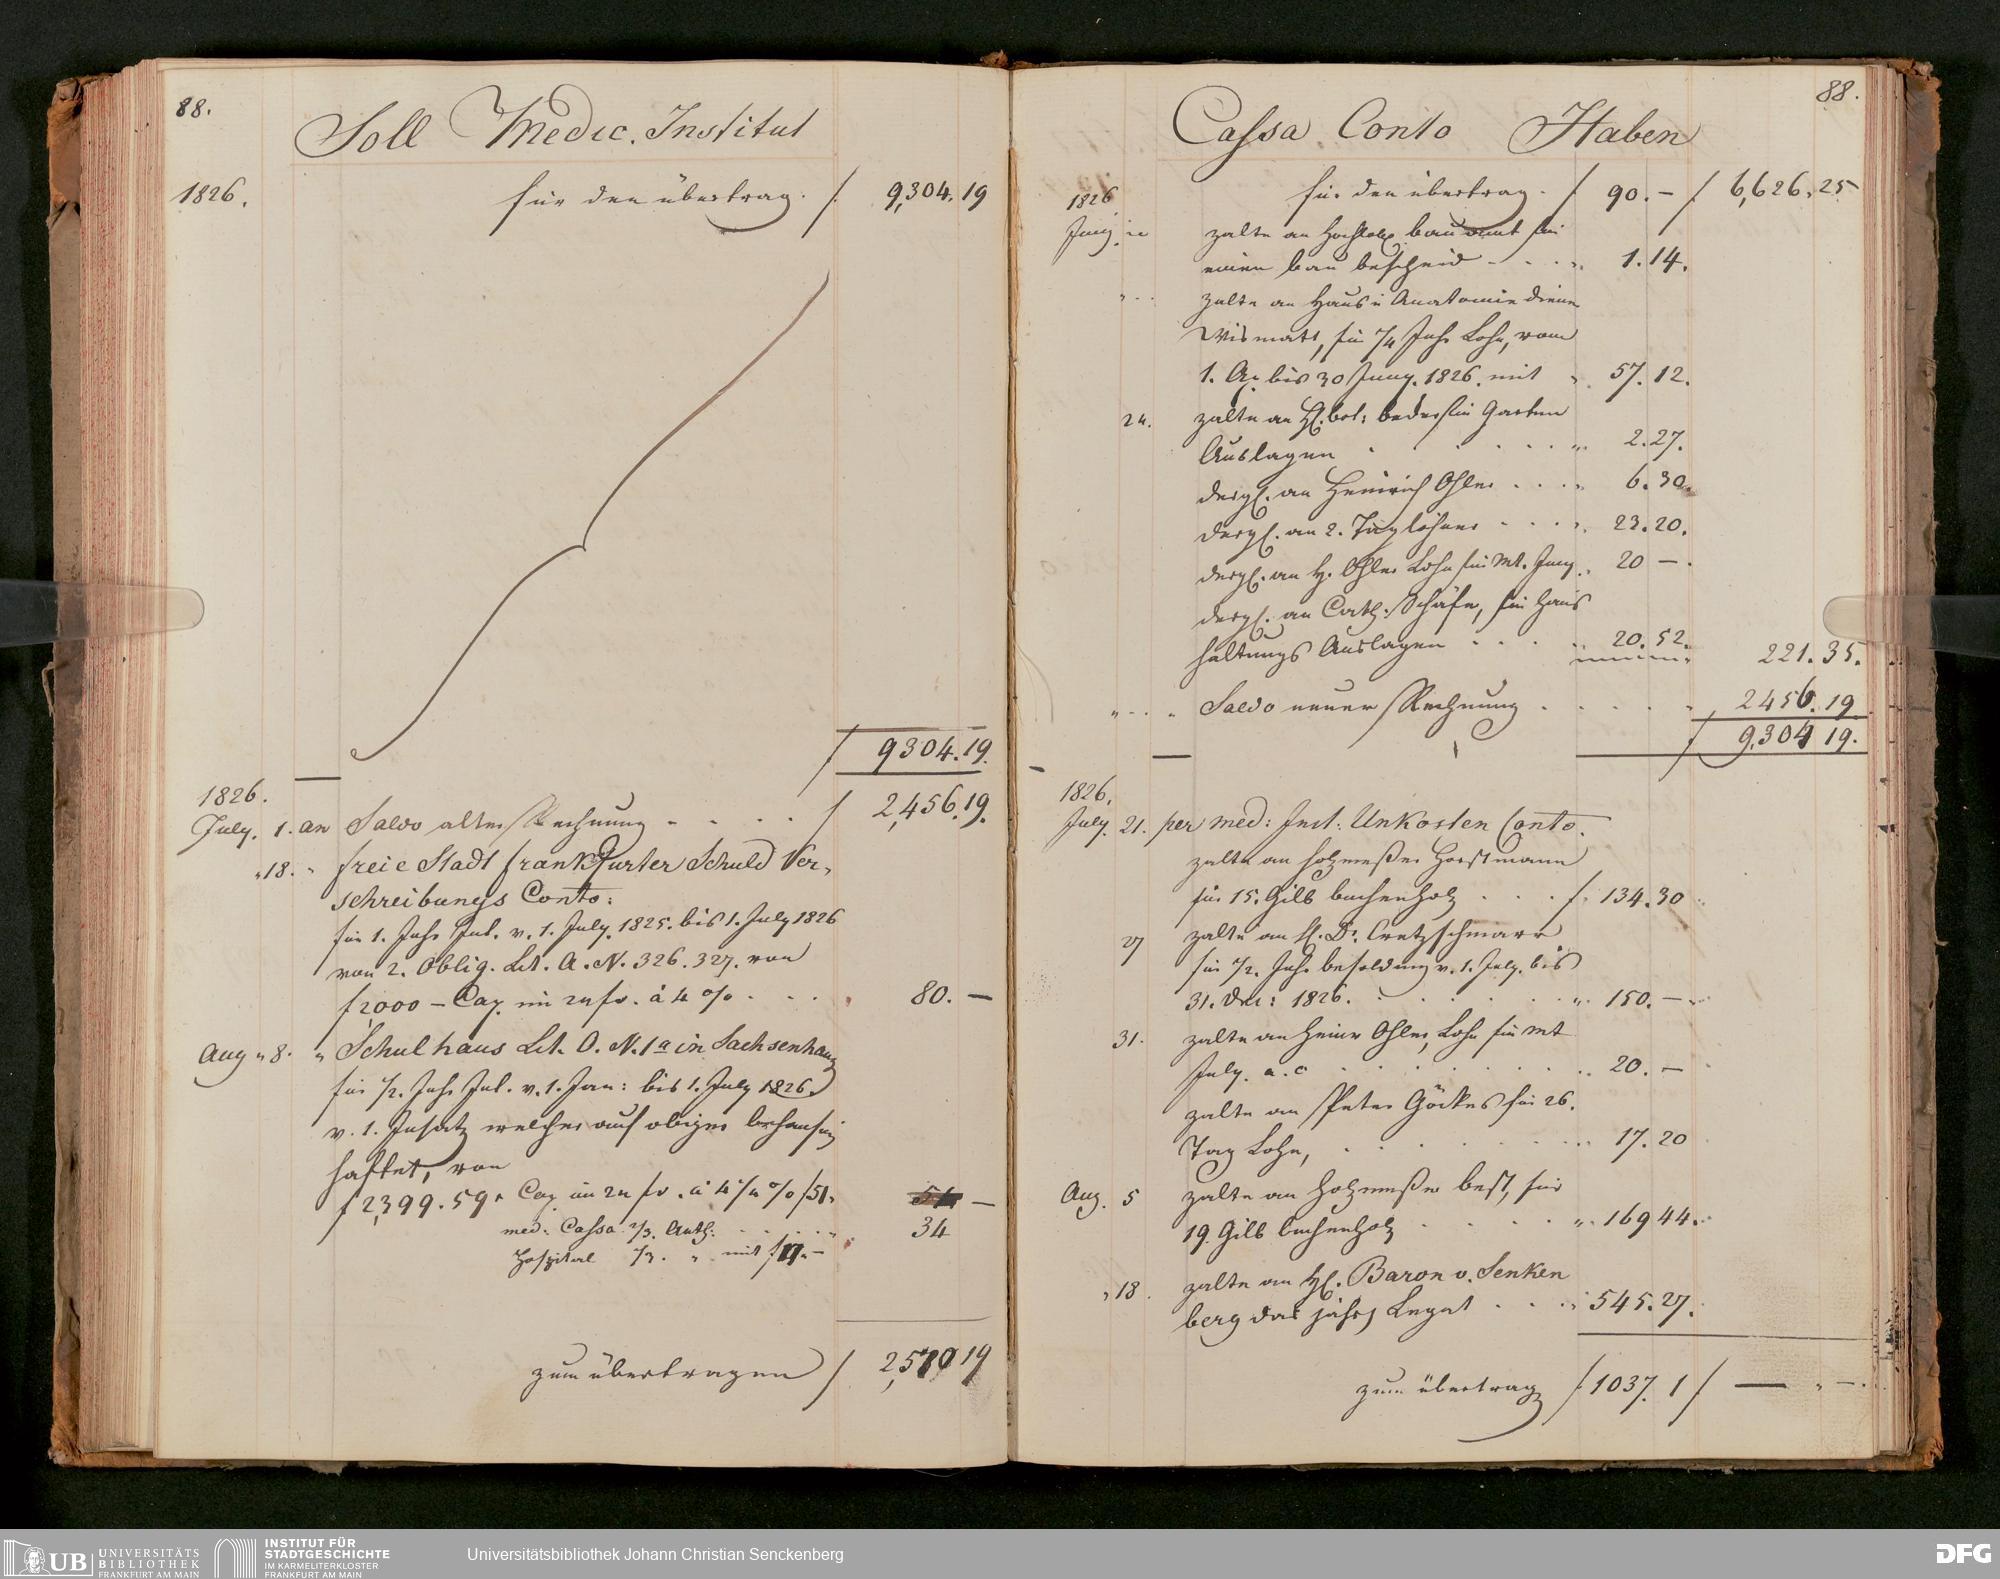 88.
Soll Medic. Institut
1826.
für den übertrag. f 9,304.19
f 9304.19.
1826.
July. 1. an Saldo alter Rechnung - - . . f 2,456.19.
"18. " freie Stadt frankfurter Schuld Ver-
schreibungs Conto:
für 1. Jahr Int. v. 1. July. 1825. bis 1. July 1826
von 2. Oblig. Lit. A. N. 326. 327. von
f 2,000 – Cap. im 24 fr. á 4 % . . . 80. —
Aug " 8. " Schulhaus Lit. O. N. 1a in Sachsenhauß
für 1/2. Jahr Int. v. 1. Jan: bis 1. July 1826.
v. 1. Insatz welcher auf obiger behausung
haftet, von
f 2,399.59 " Cap im 24 fr. á 4 1/4 % f 51. —
med: Cassa 2/3. Anth: . . . . 34
Hospital 1/3. " mit f 17. –
zum übertragen f 2,570 19
88.
Cassa Conto Haben
1826 für den übertrag. f 90. – f 6,626.25
Juny zalte an bau amt für
einen bau bescheid - - . . 1.14.
zalte an Haus u Anatomie diener
Wismatt, für 1/4 Jahr Lohn, vom
1. Ap. bis 30 Juny. 1826. mit " 57.12.
24. zalte an H. bot: für Garten
Auslagen . . . . . 2.27.
dergl. an Heinrich Ohler . . . 6.30.
dergl. an 2. Taglöhner - - . . 23.20.
dergl. an H. Ohler Lohn für Mt. Juny. " 20 – .
dergl. an Cath: Schäfer, für Haus
haltungs Auslagen . . . . 20.52. 221.35.
Saldo neuer Rechnung . . . . . 2456.19
f 9,304 19.
1826.
July. 21. per med: Inst: Unkosten Conto.
zalte an holzmeßer Horstmann
für 15. Gilb buchenholz . . . f. 134.30
27 zalte an H. Dr. Cretzschmarr
für 1/2. Jahr besoldung v. 1. July. bis
31. Dec: 1826. . . . . . " 150. —
31. zalte an Heinr Ohler, Lohn für Mt
July. a. c . . . . . . 20. —
zalte an Peter Göckes für 26.
Tag Lohn, . . . . . . 17.20
Aug. 5 zalte an holzmeßer best, für
19. Gilb buchenholz . . . . " 169 44.
"18. zalte an H. Baron v. Senken
berg das jährl Legat . . . " 545.27.
zum übertrag f 1037. 1 f — " —
UB UNIVERSITÄTS
BIBLIOTHEK
FRANKFURT AM MAIN
INSTITUT FÜR
STADTGESCHICHTE
IM KARMELITERKLOSTER
FRANKFURT AM MAIN
Universitätsbibliothek Johann Christian Senckenberg
DFG